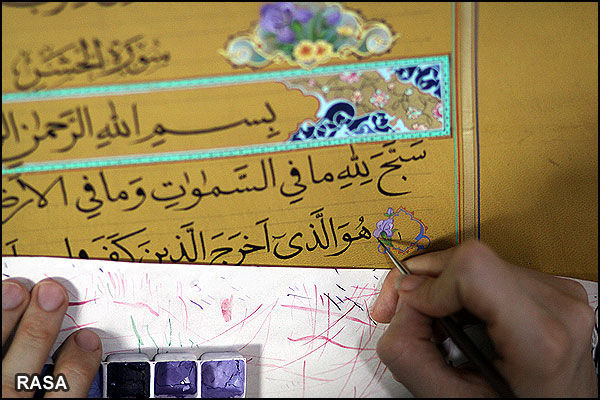 سورة الحشر
بِسمِ اللهِ الرَّحمٰنِ
سَبَّحَ لِلّٰهِ ما فِي السَّمٰوٰتِ وَ ما فِي الاَرضِ
١ هُوَ الَّذىٓ اَخرَجَ الَّذينَ كَفَروا
RASA